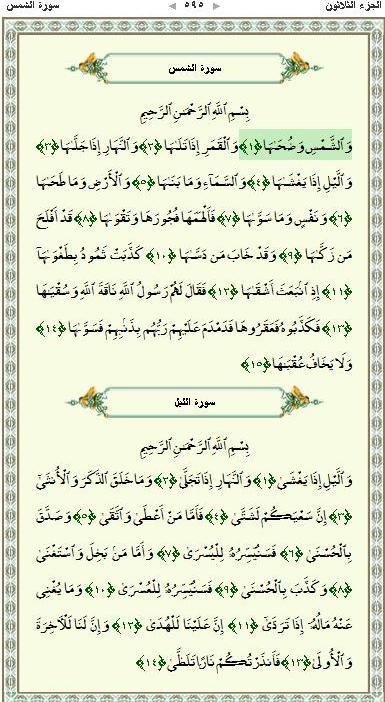 الجزء الثلاثون ٥٩٥ سورة الشمس
سورة الشمس
بِسْمِ ٱللَّهِ ٱلرَّحْمَٰنِ ٱلرَّحِيمِ
وَٱلشَّمْسِ وَضُحَىٰهَا ﴿١﴾ وَٱلْقَمَرِ إِذَا تَلَىٰهَا ﴿٢﴾ وَٱلنَّهَارِ إِذَا جَلَّىٰهَا ﴿٣﴾
وَٱلَّيْلِ إِذَا يَغْشَىٰهَا ﴿٤﴾ وَٱلسَّمَآءِ وَمَا بَنَىٰهَا ﴿٥﴾ وَٱلْأَرْضِ وَمَا طَحَىٰهَا
﴿٦﴾ وَنَفْسٍ وَمَا سَوَّىٰهَا ﴿٧﴾ فَأَلْهَمَهَا فُجُورَهَا وَتَقْوَىٰهَا ﴿٨﴾ قَدْ أَفْلَحَ
مَن زَكَّىٰهَا ﴿٩﴾ وَقَدْ خَابَ مَن دَسَّىٰهَا ﴿١٠﴾ كَذَّبَتْ ثَمُودُ بِطَغْوَىٰهَآ
﴿١١﴾ إِذِ ٱنۢبَعَثَ أَشْقَىٰهَا ﴿١٢﴾ فَقَالَ لَهُمْ رَسُولُ ٱللَّهِ نَاقَةَ ٱللَّهِ وَسُقْيَٰهَا
﴿١٣﴾ فَكَذَّبُوهُ فَعَقَرُوهَا فَدَمْدَمَ عَلَيْهِمْ رَبُّهُم بِذَنۢبِهِمْ فَسَوَّىٰهَا ﴿١٤﴾
وَلَا يَخَافُ عُقْبَٰهَا ﴿١٥﴾
سورة الليل
بِسْمِ ٱللَّهِ ٱلرَّحْمَٰنِ ٱلرَّحِيمِ
وَٱلَّيْلِ إِذَا يَغْشَىٰ ﴿١﴾ وَٱلنَّهَارِ إِذَا تَجَلَّىٰ ﴿٢﴾ وَمَا خَلَقَ ٱلذَّكَرَ وَٱلْأُنثَىٰٓ
﴿٣﴾ إِنَّ سَعْيَكُمْ لَشَتَّىٰ ﴿٤﴾ فَأَمَّا مَنْ أَعْطَىٰ وَٱتَّقَىٰ ﴿٥﴾ وَصَدَّقَ
بِٱلْحُسْنَىٰ ﴿٦﴾ فَسَنُيَسِّرُهُۥ لِلْيُسْرَىٰ ﴿٧﴾ وَأَمَّا مَنۢ بَخِلَ وَٱسْتَغْنَىٰ
﴿٨﴾ وَكَذَّبَ بِٱلْحُسْنَىٰ ﴿٩﴾ فَسَنُيَسِّرُهُۥ لِلْعُسْرَىٰ ﴿١٠﴾ وَمَا يُغْنِى
عَنْهُ مَالُهُۥٓ إِذَا تَرَدَّىٰٓ ﴿١١﴾ إِنَّ عَلَيْنَا لَلْهُدَىٰ ﴿١٢﴾ وَإِنَّ لَنَا لَلْءَاخِرَةَ
وَٱلْأُولَىٰ ﴿١٣﴾ فَأَنذَرْتُكُمْ نَارًا تَلَظَّىٰ ﴿١٤﴾